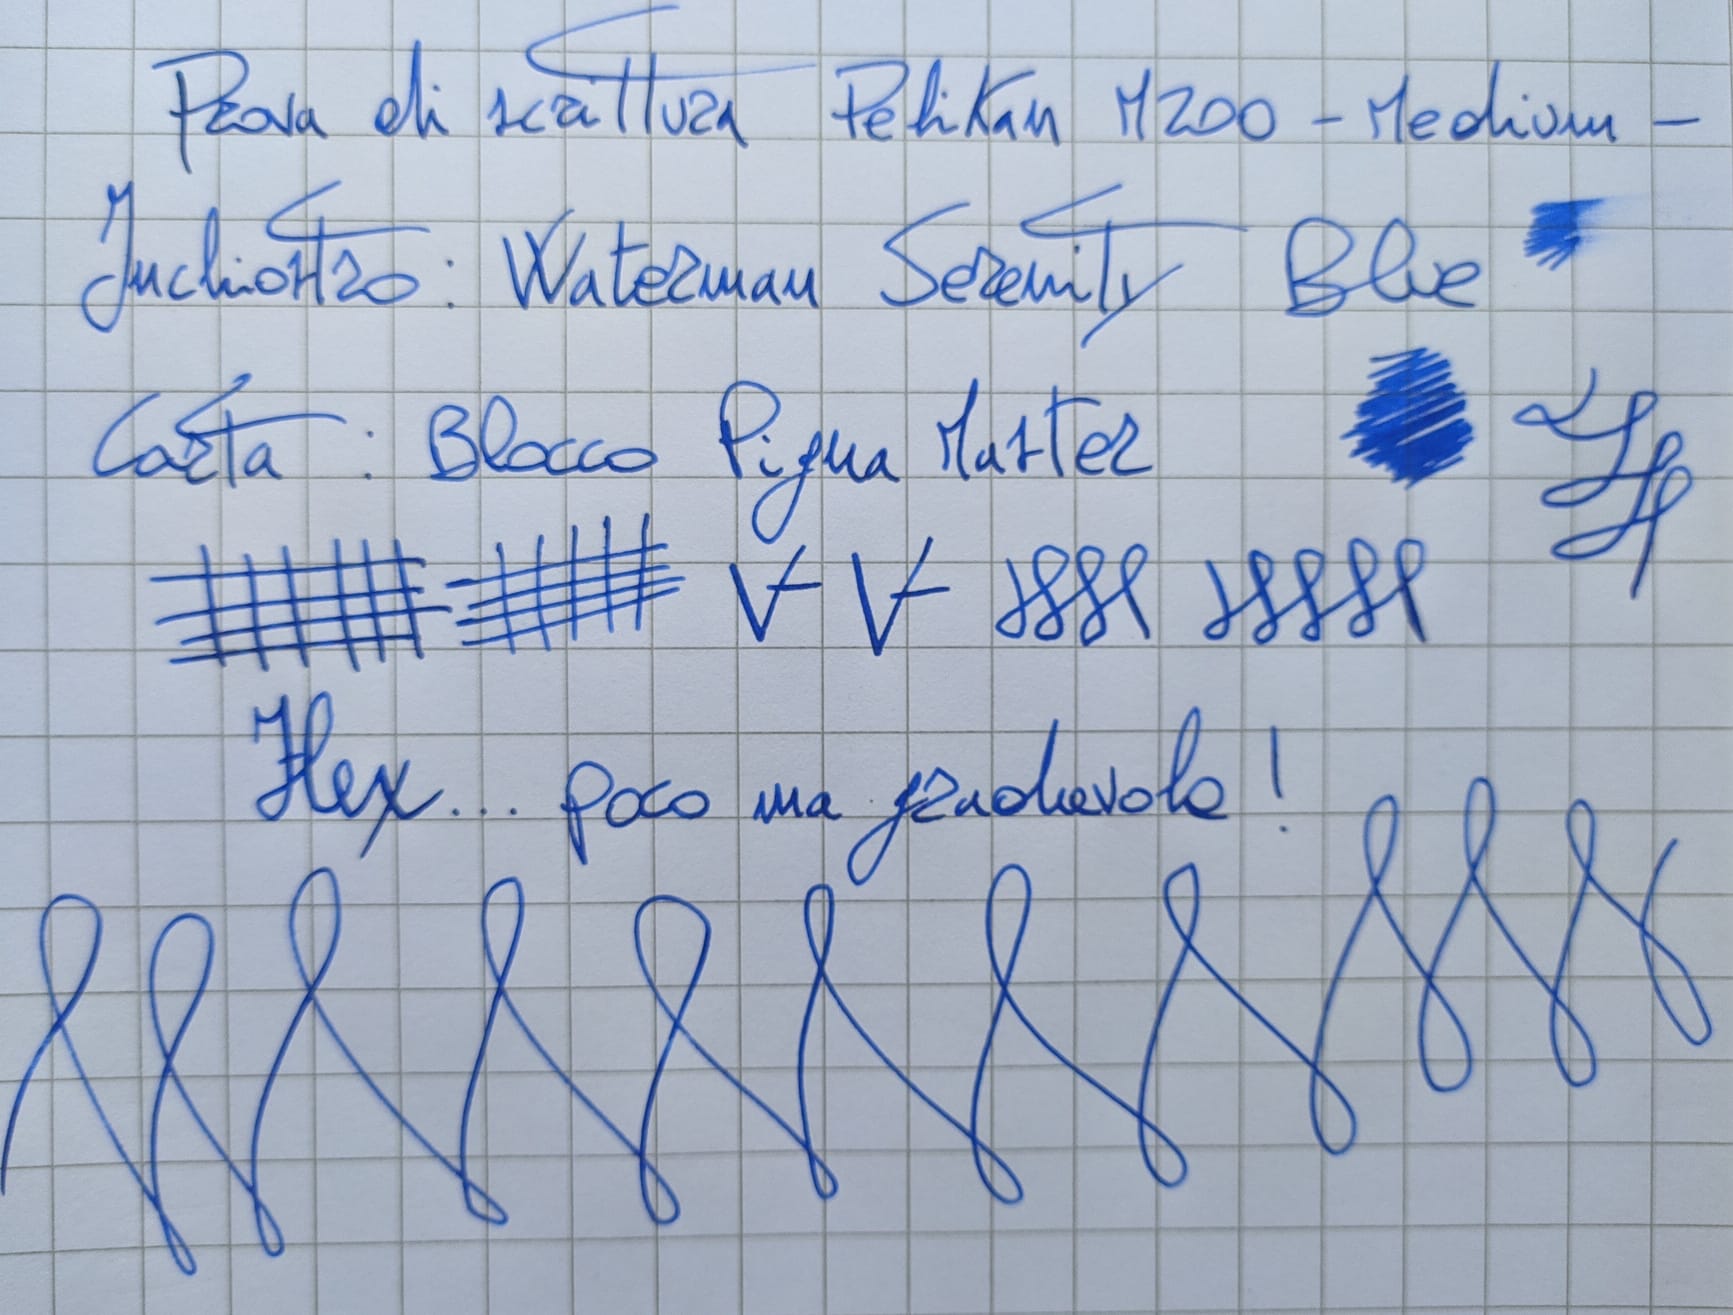 Prova di scrittura Pelikan M200 - Medium -
Inchiostro: Waterman Serenity Blue
Carta: Blocco Pigna Master
Flex... poco ma gradevole!